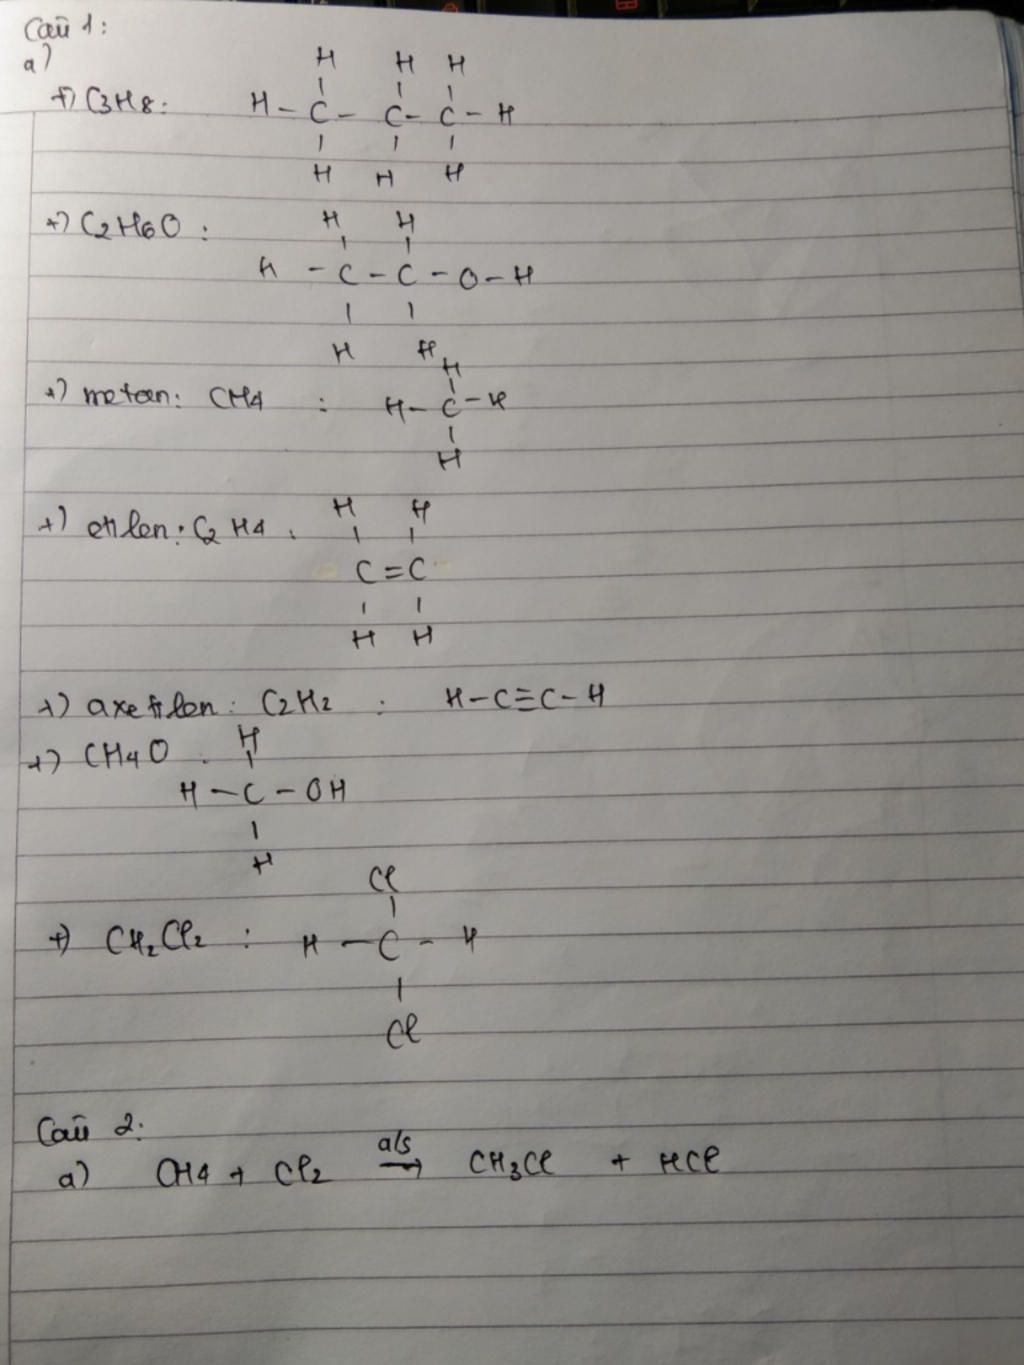 Câu 1:
a)
H H H
+) C3H8: H - C - C - C - H
H H H
+) C2H6O: H H
H - C - C - O - H
H H
H
+) metan: CH4 : H - C - H
H
H H
+) etilen: C2H4:
C = C
H H
+) axetilen: C2H2 : H - C ≡ C - H
+) CH4O : H
H - C - OH
H
Cl
+) CH2Cl2 : H - C - H
Cl
Câu 2:
a) CH4 + Cl2 a/s → CH3Cl + HCl